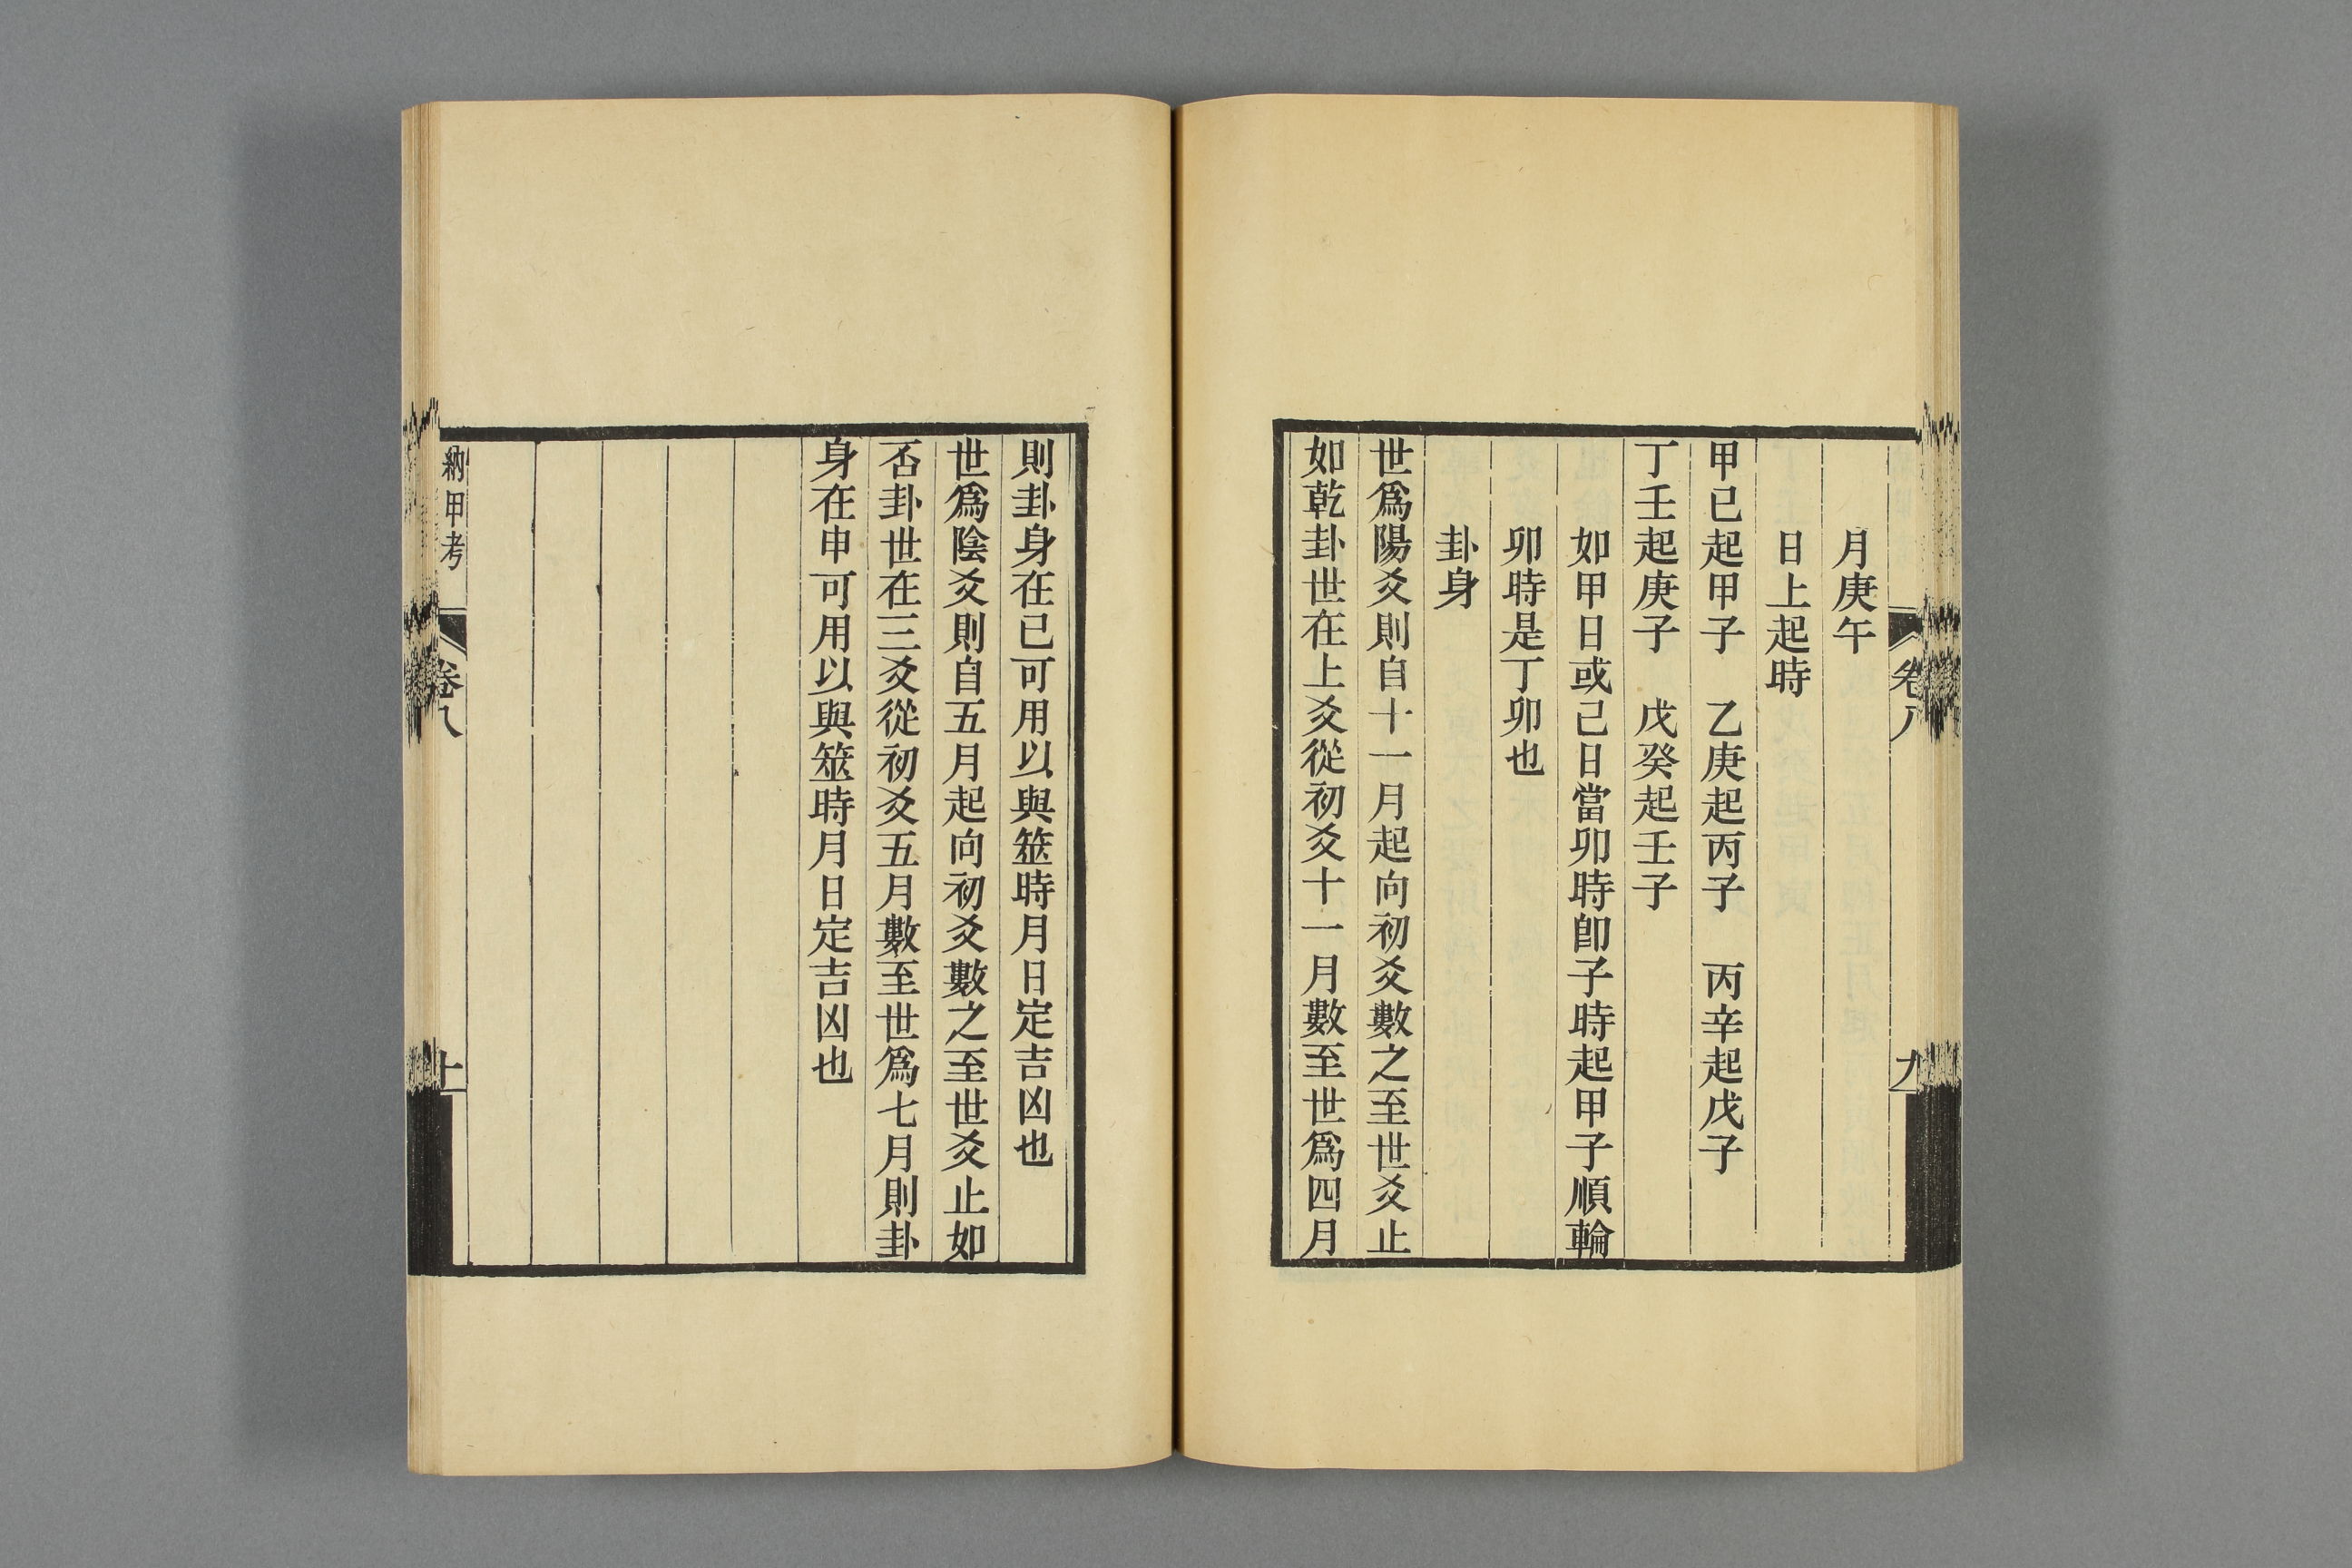 月庚午
日上起時
甲已起甲子　乙庚起丙子　丙辛起戊子
丁壬起庚子　戊癸起壬子
如甲日或己日當卯時卽子時起甲子順輪
卯時是丁卯也
卦身
世爲陽爻則自十一月起向初爻數之至世爻止
如乾卦世在上爻從初爻十一月數至世爲四月
卷八
九
則卦身在巳可用以與筮時月日定吉凶也
世爲陰爻則自五月起向初爻數之至世爻止如
否卦世在三爻從初爻五月數至世爲七月則卦
身在申可用以與筮時月日定吉凶也
納甲考
卷八